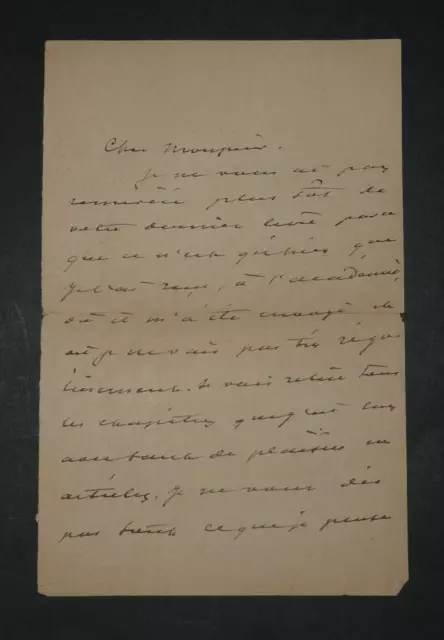 Cher Monsieur.
Je ne vous ai pas
remercié plus tôt de
votre dernier livre parce
que ce n'est qu'hier que
je l'ai reçu, à l'académie,
où il m'a été envoyé et
où je ne vais pas très régu
lièrement. Je vais relire tous
les chapitres que j'ai lus
avec tant de plaisir en
articles. Je ne vous dis
pas tout ce que je pense